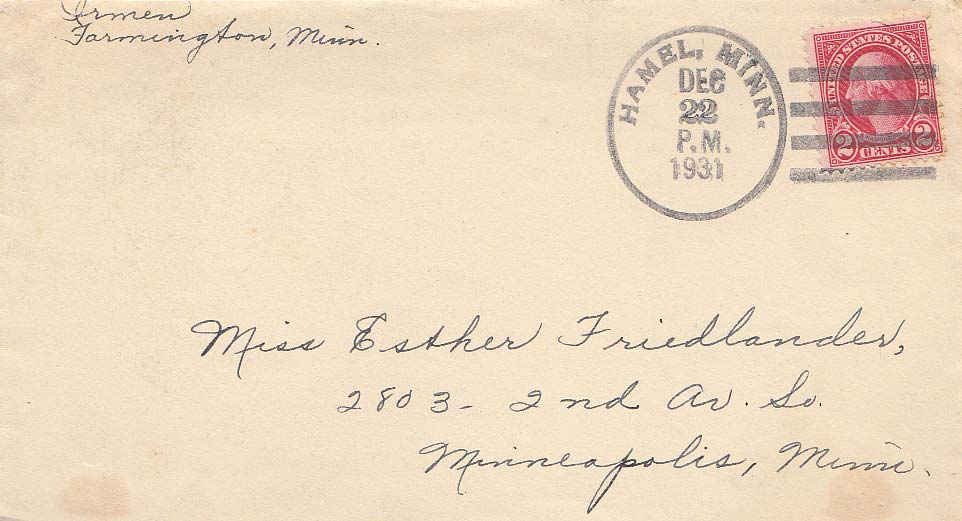 Irmen
Farmington, Minn.
HAMEL, MINN.
DEC
22
P.M.
1931
UNITED STATES POSTAGE
2 CENTS 2
Miss Esther Friedlander,
2803 - 2nd Av. So.
Minneapolis, Minn.